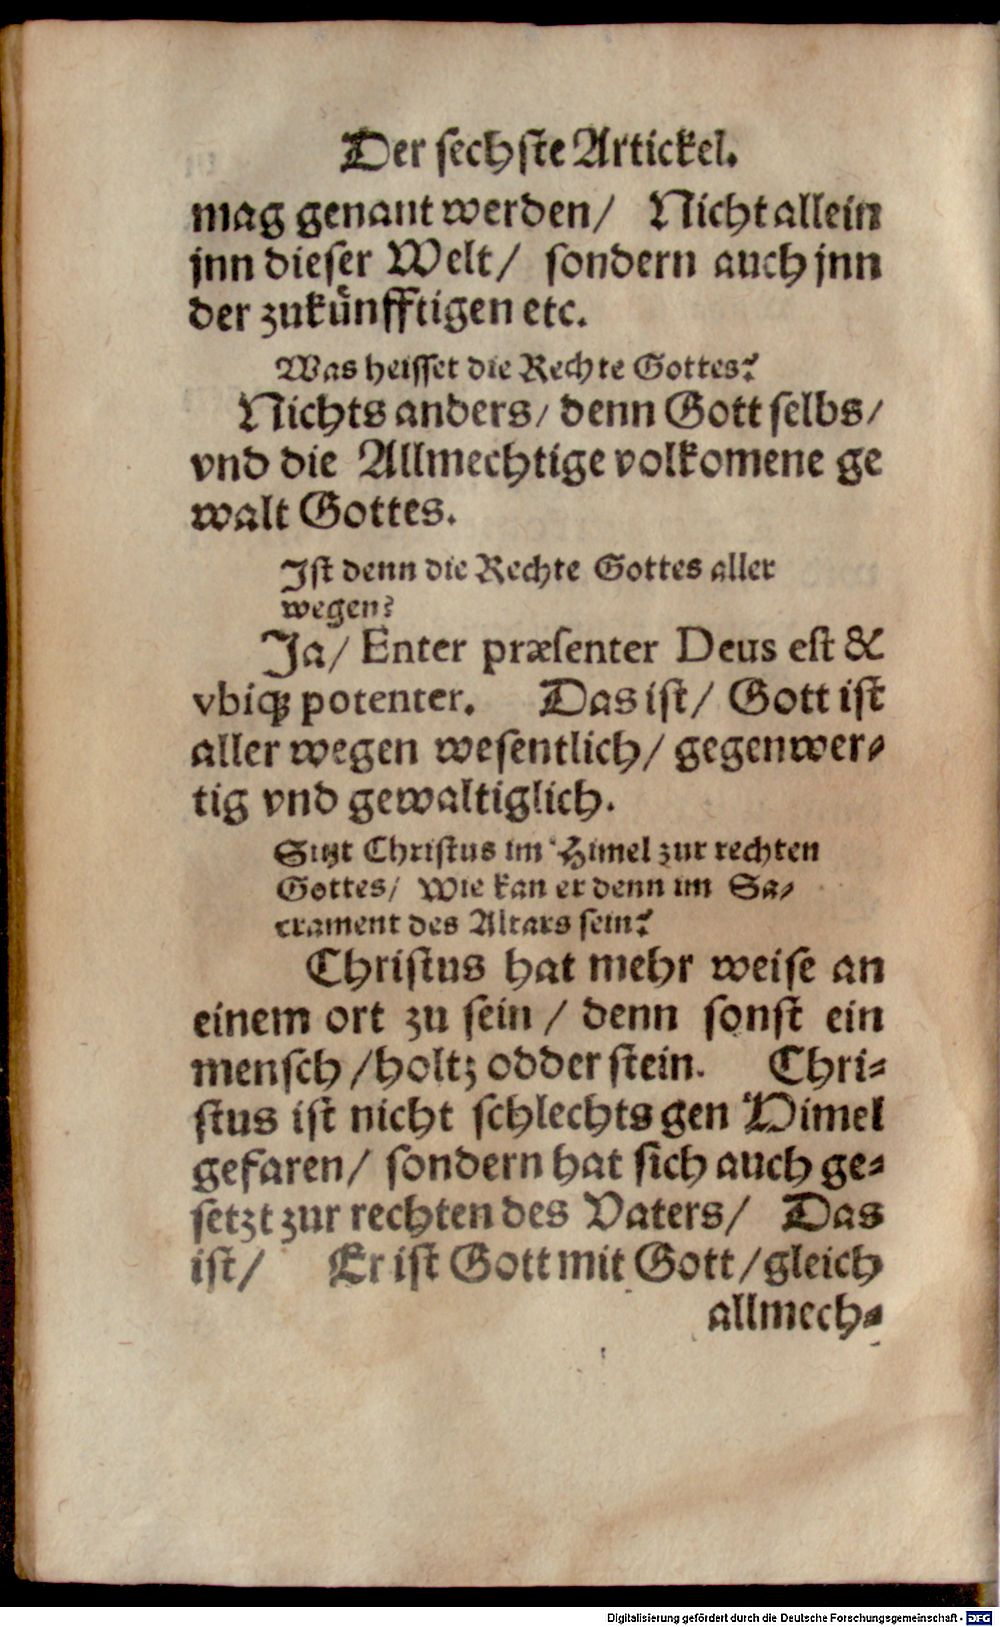 Der sechste Artickel.
mag genant werden/ Nicht allein
jnn dieser Welt/ sondern auch jnn
der zukünfftigen etc.
Was heisset die Rechte Gottes?
Nichts anders/ denn Gott selbs/
vnd die Allmechtige volkomene ge
walt Gottes.
Jst denn die Rechte Gottes aller
wegen?
Ja/ Enter præsenter Deus est &
vbiqꝫ potenter. Das ist/ Gott ist
aller wegen wesentlich/ gegenwer⸗
tig vnd gewaltiglich.
Sitzt Christus im Himel zur rechten
Gottes/ Wie kan er denn im Sa⸗
crament des Altars sein?
Christus hat mehr weise an
einem ort zu sein / denn sonst ein
mensch /holtz odder stein. Chri⸗
stus ist nicht schlechts gen Himel
gefaren/ sondern hat sich auch ge⸗
setzt zur rechten des Vaters/ Das
ist/ Er ist Gott mit Gott /gleich
allmech⸗
Digitalisierung gefördert durch die Deutsche Forschungsgemeinschaft - DFG